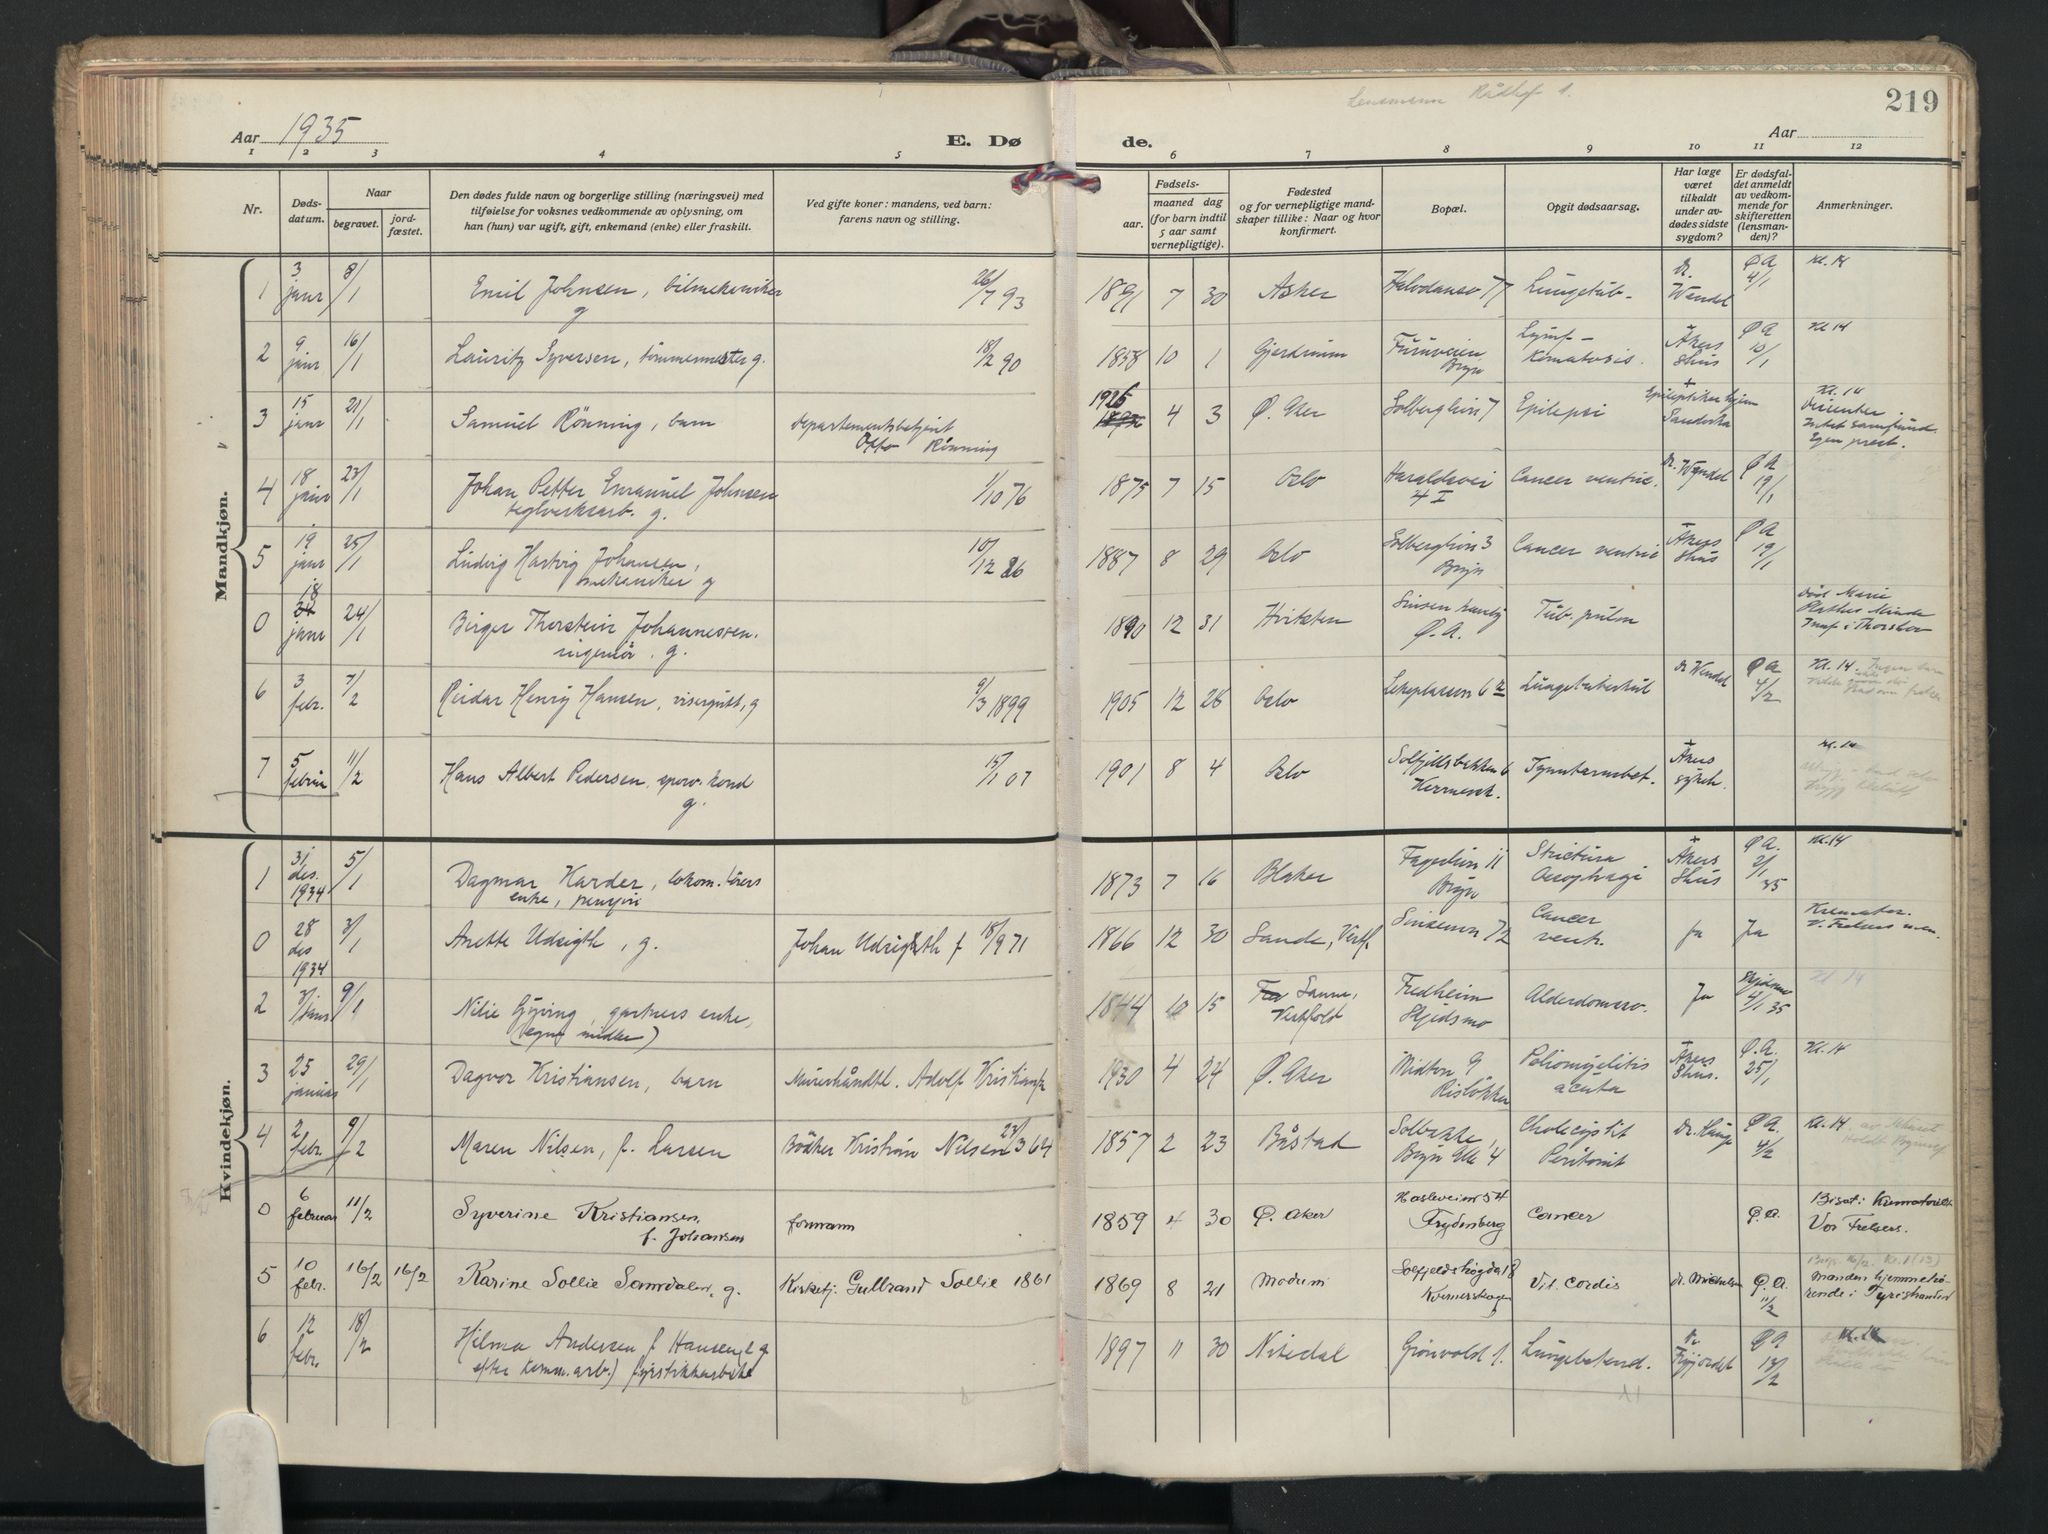 Lensmann Rådhuf 1.
219
Aar 1935
E. Dø
de.
Aar
1 2 3 4 5 6 7 8 9 10 11 12
Nr.
Døds-
datum.
Naar
begravet.
jord-
fæstet.
Den dødes fulde navn og borgerlige stilling (næringsvei) med
tilføielse for voksnes vedkommende av oplysning, om
han (hun) var ugift, gift, enkemand (enke) eller fraskilt.
Ved gifte koner: mandens, ved barn:
farens navn og stilling.
Fødsels-
aar.
maaned dag
(for barn indtil
5 aar samt
vernepligtige).
Fødested
og for vernepligtige mand-
skaper tillike: Naar og hvor
konfirmert.
Bopæl.
Opgit dødsaarsag.
Har læge
været
tilkaldt
under av-
dødes sidste
sygdom?
Er dødsfal-
det anmeldt
av vedkom-
mende for
skifteretten
(lensman-
den)?
Anmerkninger.
Mandkjøn.
1 3 janr 8/1 Emil Johnsen, bilmekaniker g 26/7 93 1891 7 30 Asker Halvdansv 77 Lungetub. Dr. Wendel Ø A 4/1 Kl. 14
2 9 janr 16/1 Lauritz Syversen, tømmermester g. 18/2 90 1858 10 1 Gjerdrum Furuveien Bryn Lymf- Aker shus Ø A 10/1 Kl 14
3 15 janr 21/1 Samuel Rönning, barn departementsbetjent Otto Rönning 1926 4 3 Ø. Aker Solberglien 7 Epilepsi Epileptikerhjem Sandvika Kl. 14 Egen prest.
4 18 janr 23/1 Johan Petter Emanuel Johnsen teglverksarb. g. 1/10 76 1875 7 15 Oslo Haraldsvei 4 I Cancer ventric. Dr. Wendel Ø A 19/1
5 19 janr 25/1 Ludvig Hartvig Johansen, mekaniker g 10/12 86 1887 8 29 Oslo Solberglien 3 Bryn Cancer ventric Akers shus Ø A 19/1
0 18 janr 24/1 Birger Thorstein Johannessen. ingeniör. g. 1890 12 31 Hvitsten Sinsen haveby Ø. A. Tub. pulm
6 3 febr. 7/2 Reidar Henry Hansen, visergutt, g 9/3 1899 1905 12 26 Oslo Lekeplassen 6 Lungetuberkul Dr Wendel Ø A 4/2 Kl. 14
7 5 februar 11/2 Hans Albert Pedersen, sporv. kond g. 15/1 07 1901 8 4 Oslo Solfjellsbakken 6 Akers sykeh. Kl. 14
Kvindekjøn.
1 31 des. 1934 5/1 Dagmar Harder, lokom. förers enke, pensjon 1873 7 16 Blaker Fagerlien 11 Bryn Strictura Oesophagi Akers shus Ø A. 2/1 35 Kl. 14
0 28 des 1934 3/1 Anette Udsigth, g. Johan Udsigth f 18/9 71 1866 12 30 Sande, Vestf. Sinsenvn 72 Cancer ventr. ja Ja Kremator. V. Frelsers
2 3/janr 9/1 Nilie Gjöving, gartners enke, (egne midler) 1844 10 15 Sanne, Vestfold Fredheim Skjedsmo Alderdomssv. Ja Skjedsmo 4/1 35 Kl 14
3 25 januar 29/1 Dagvor Kristiansen, barn Murerhåndtl. Adolf Kristiansen 1930 4 24 Ø. Aker Midtvn 9 Risløkka Poliomyelitis acuta Akers shus. Ø. A. 25/1 Kl. 14
4 2 febr. 9/2 Maren Nilsen, f. Larsen Bödker Kristian Nilsen 23/3 64 1857 2 23 Båstad Solbakke, Bryn Alle 4 Cholecystit Peritonit Ø A. 4/2 Kl. 14
0 6 februar 11/2 Syverine Kristiansen f. Johansen formann 1859 4 30 Ø. Aker Hasleveien 54 Frydenberg Cancer Ø. A. Bisat i Krematoriet Vor Frelsers.
5 10 febr. 16/2 16/2 Karine Sollie Samdalen, g. Kirketj. Gulbrand Sollie 1861 1869 8 21 Modum Solfjeldshøgda 18 Kvernerskogen Vit. Cordis dr. Michelsen Ø. A. 11/2 Manden hjemmehørende i Tyristrand
6 12 febr. 18/2 Hilma Andersen f Hansen, g efter komm.arb.) fyrstikkarbeide 1897 11 30 Nitedal Grönvold 1. Lungebetend. Dr. Ø A 13/2 Kl. 14